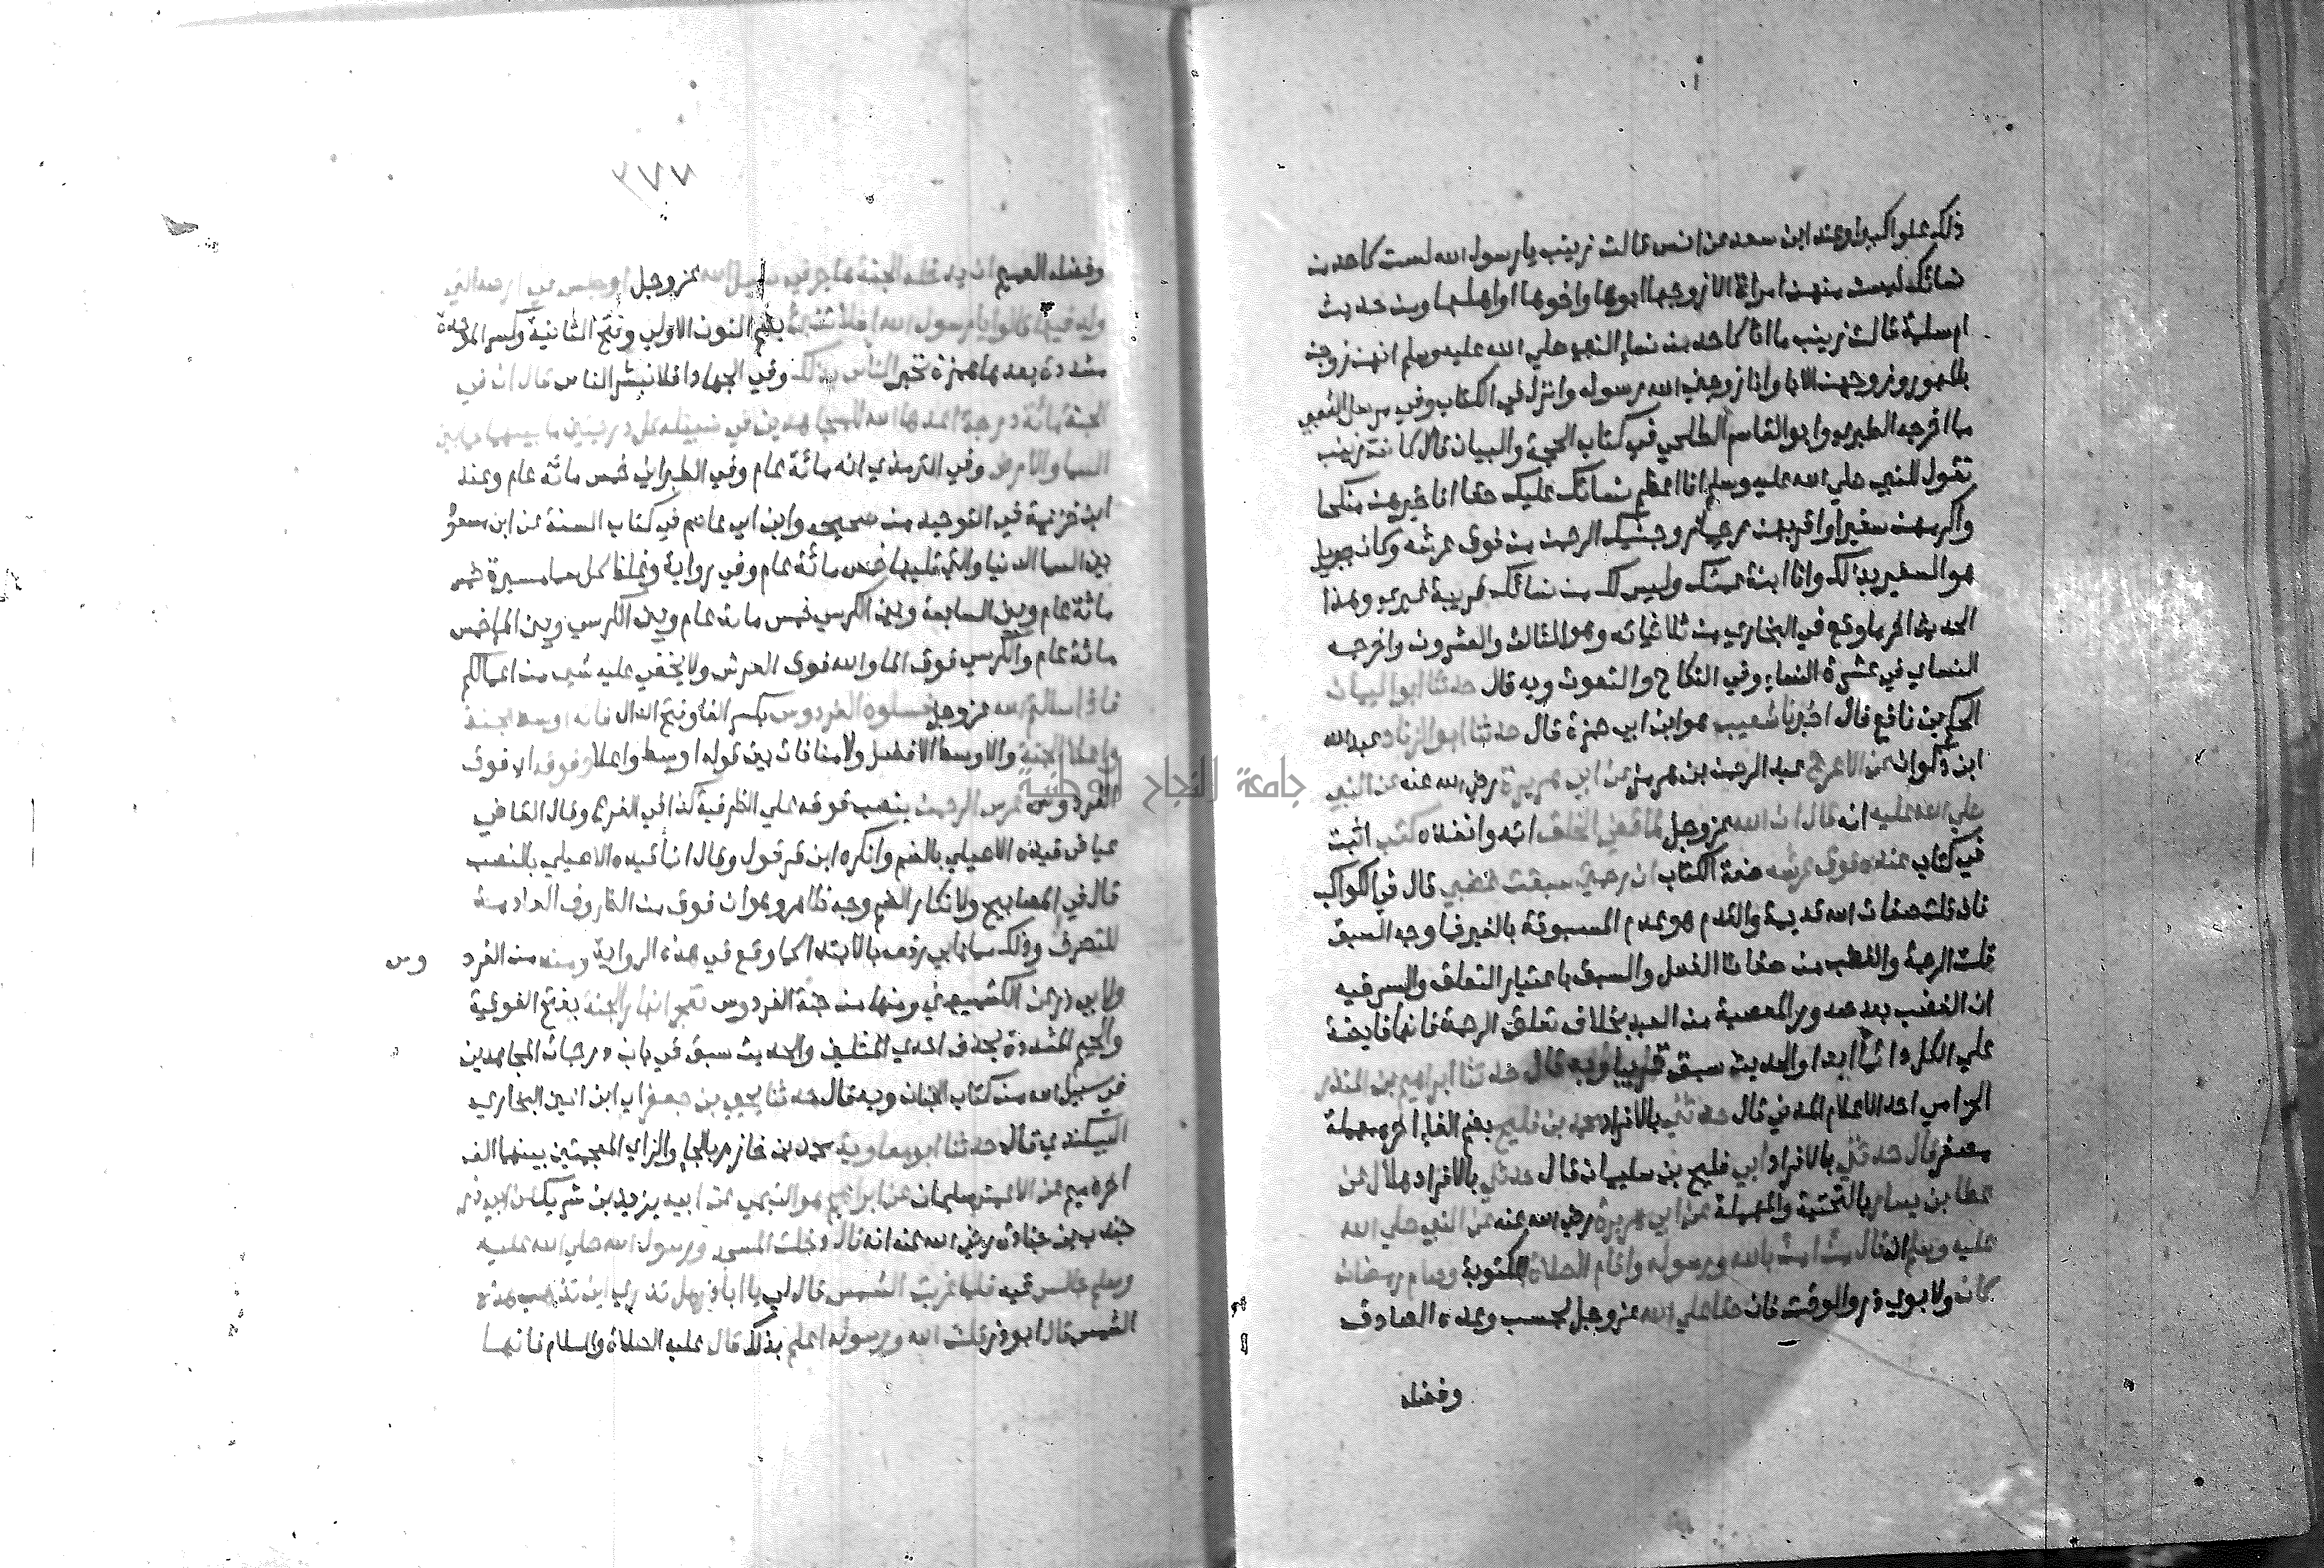 ذلك علوا كبيرا وعند ابن سعد عن انس قالت زينب يا رسول الله لست كاحد من
نسائك ليست منهن امراة الا زوجها ابوها واخوها او اهلها ومن حديث
ام سلمة قالت زينب ما انا كاحد من نساء النبي صلي الله عليه وسلم انهن زوجن
بالمهور وزوجهن الاباء وانا زوجني الله رسوله وانزل في الكتاب وفي مرسل الشعبي
مما اخرجه الطبري وابو القاسم الطلحي في كتاب الحجة والبيان قال كانت زينب
تقول للنبي صلي الله عليه وسلم انا اعظم نسائك عليك حقا انا خيرهن منكحا
واكرمهن سفيرا واقربهن رحما زوجنيك الرحمن من فوق عرشه وكان جبريل
هو السفير بذلك وانا ابنة عمتك وليس لك من نسائك قريبة غيري وهذا
الحديث اخر ما وقع في البخاري من ثلاثياته وهو الثالث والعشرون واخرجه
النساي في عشرة النساء وفي النكاح والنعوت وبه قال حدثنا ابو اليمان
الحكم بن نافع قال اخبرنا شعيب هو ابن ابي حمزة قال حدثنا ابو الزناد عبد الله
ابن ذكوان عن الاعرج عبد الرحمن بن هرمز عن ابي هريرة رضي الله عنه عن النبي
صلي الله عليه انه قال ان الله عزوجل لما قضي الخلق اتمه وانفذه كتب اثبت
في كتاب عنده فوق عرشه صفة الكتاب ان رحمتي سبقت غضبي قال في الكواكب
فان قلت صفات الله قديمة والقدم هو عدم المسبوقية بالغير فما وجه السبق
قلت الرحمة والغضب من صفات الفعل والسبق باعتبار التعلق والسر فيه
ان الغضب بعد صدور المعصية من العبد بخلاف تعلق الرحمة فانها فايضة
علي الكل دائما ابدا والحديث سبق قريبا وبه قال حدثنا ابراهيم بن المنذر
الحزامي احد الاعلام المدني قال حدثني بالافراد محمد بن فليح بضم الفاء اخره مهملة
مصغر قال حدثني بالافراد ابي فليح بن سليمان قال حدثني بالافراد هلال عن
عطا بن يسار بالتحتية والمهملة عن ابي هريرة رضي الله عنه عن النبي صلي الله
عليه وسلم انه قال من امن بالله ورسوله واقام الصلاة المكتوبة وصام رمضان
كان ولابوي ذر والوقت فان حقا علي الله عزوجل بحسب وعده الصادق
وفضله
٣٧٧
وفضله العميم ان يدخله الجنة هاجر في سبيل الله عزوجل او جلس في ارضه التي
ولد فيها قالوا يا رسول الله افلا ننبئ بضم النون الاولي وفتح الثانية وكسر الموحدة
مشددة بعدها همزة نخبر الناس بذلك وفي الجهاد افلا نبشر الناس قال ان في
الجنة مائة درجة اعدها الله للمجاهدين في سبيله كل درجتين ما بينهما كما بين
السما والارض وفي الترمذي انه مائة عام وفي الطبراني خمس مائة عام وعند
ابن خزيمة في التوحيد من صحيحه وابن ابي عاصم في كتاب السنة عن ابن مسعود
بين السما الدنيا والتي تليها خمس مائة عام وفي رواية وغلظ كل سما مسيرة خمس
مائة عام وبين السابعة وبين الكرسي خمس مائة عام وبين الكرسي وبين الماء خمس
مائة عام والكرسي فوق الما والله فوق العرش ولا يخفي عليه شي من اعمالكم
فاذا سالتم الله عزوجل فسلوه الفردوس بكسر الفا وفتح الدال فانه اوسط الجنة
واعلا الجنة والاوسط الافضل ولا منافات بين قوله اوسط واعلا وفوقه اي فوق
الفردوس عرش الرحمن بنصب فوقه علي الظرفية كذا في الفرع وقال القاضي
عياض قيده الاصيلي بالضم وانكره ابن قرقول وقال انما قيده الاصيلي بالنصب
قال في المصابيح ولانكار الضم وجه ظاهر وهو ان فوق من الظروف العادمة
للتصرف وذلك مما يابي رفعه بالابتدا كما وقع في هذه الرواية ومنه من الفرد وس
ولابي ذر عن الكشميهني ومنها من جنة الفردوس تفجر انهار الجنة بفتح الفوقية
والجيم المشددة بحذف احدي المثلين والحديث سبق في باب درجات المجاهدين
في سبيل الله من كتاب الجهاد وبه قال حدثنا يحيي بن جعفر اي ابن اعين البخاري
البيكندي قال حدثنا ابو معاوية محمد بن خازم بالخاء والزاي المعجمتين بينهما الف
اخره ميم عن الاعمش سليمان عن ابراهيم هو التيمي عن ابيه يزيد بن شريك عن ابي ذر
جندب بن جنادة رضي الله عنه انه قال دخلت المسجد ورسول الله صلي الله عليه
وسلم جالس فيه فلما غربت الشمس قال لي يا ابا ذر هل تدري اين تذهب هذه
الشمس قال ابو ذر قلت الله ورسوله اعلم بذلك قال عليه الصلاة والسلام فانها
جامعة النجاح الوطنية